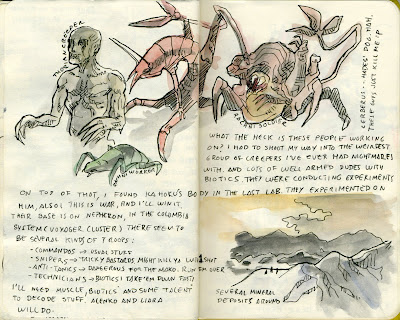 THORIAN CREEPER
RACHNI SOLDIER
RACHNI WORKER
CERBERUS... HADES' DOG, MAN,
THESE GUYS JUST KILL ME :P
WHAT THE HECK IS THESE PEOPLE WORKING
ON? I HAD TO SHOOT MY WAY INTO THE WEIRDEST
GROUP OF CREEPERS I'VE EVER HAD NIGHTMARES
WITH. AND LOTS OF WELL ARMED DUDES WITH
BIOTICS. THEY WERE CONDUCTING EXPERIMENTS
ON TOP OF THAT, I FOUND KAHOKU'S BODY IN THE LAST LAB. THEY EXPERIMENTED ON
HIM, ALSO! THIS IS WAR, AND I'LL WIN IT.
THEIR BASE IS ON NEPHERON, IN THE COLUMBIA
SYSTEM (VOYAGER CLUSTER) THERE SEEM TO
BE SEVERAL KINDS OF TROOPS:
- COMMANDOS → USUAL STUFF
- SNIPERS → TRICKY BASTARDS MIGHT KILL YA W/ 1 SHOT
- ANTI-TANKS → DANGEROUS FOR THE MAKO. RUN 'EM OVER
- TECHNICIANS → BIOTICS! TAKE 'EM DOWN FAST!
I'LL NEED MUSCLE, BIOTICS AND SOME TALENT
TO DECODE STUFF. ALENKO AND LIARA
WILL DO.
SEVERAL MINERAL
DEPOSITS AROUND